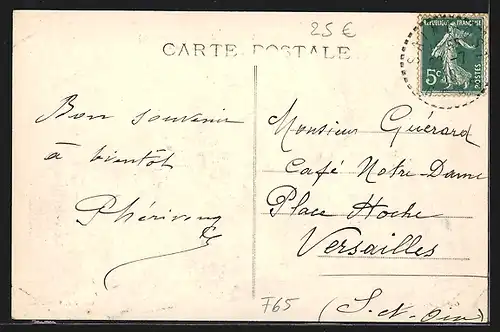 25 €
CARTE POSTALE
REPUBLIQUE FRANÇAISE
5c
POSTES
Bon souvenir
à bientôt
Monsieur Guérard
Café Notre-Dame
Place Hoche
Versailles
(S.-et-Oise)
F65